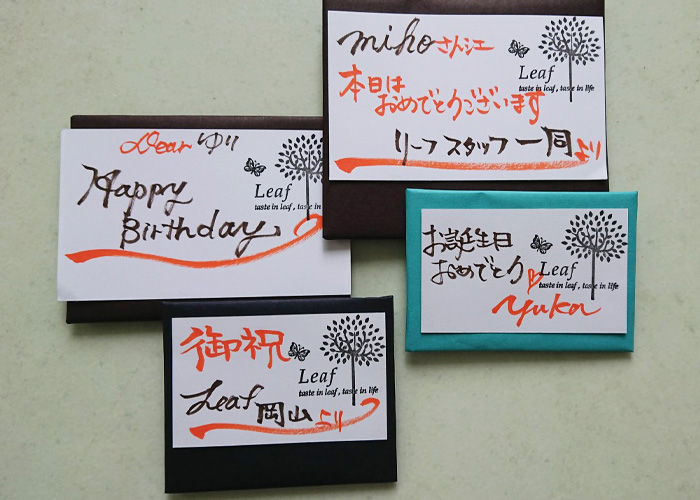 mihoさん江
本日は
おめでとうございます
リーフスタッフ一同より
Leaf
taste in leaf, taste in life
Dear ゆり
Happy
Birthday
Leaf
taste in leaf, taste in life
お誕生日
おめでとう
Yuka
Leaf
taste in leaf, taste in life
御祝
Leaf岡山より
Leaf
taste in leaf, taste in life